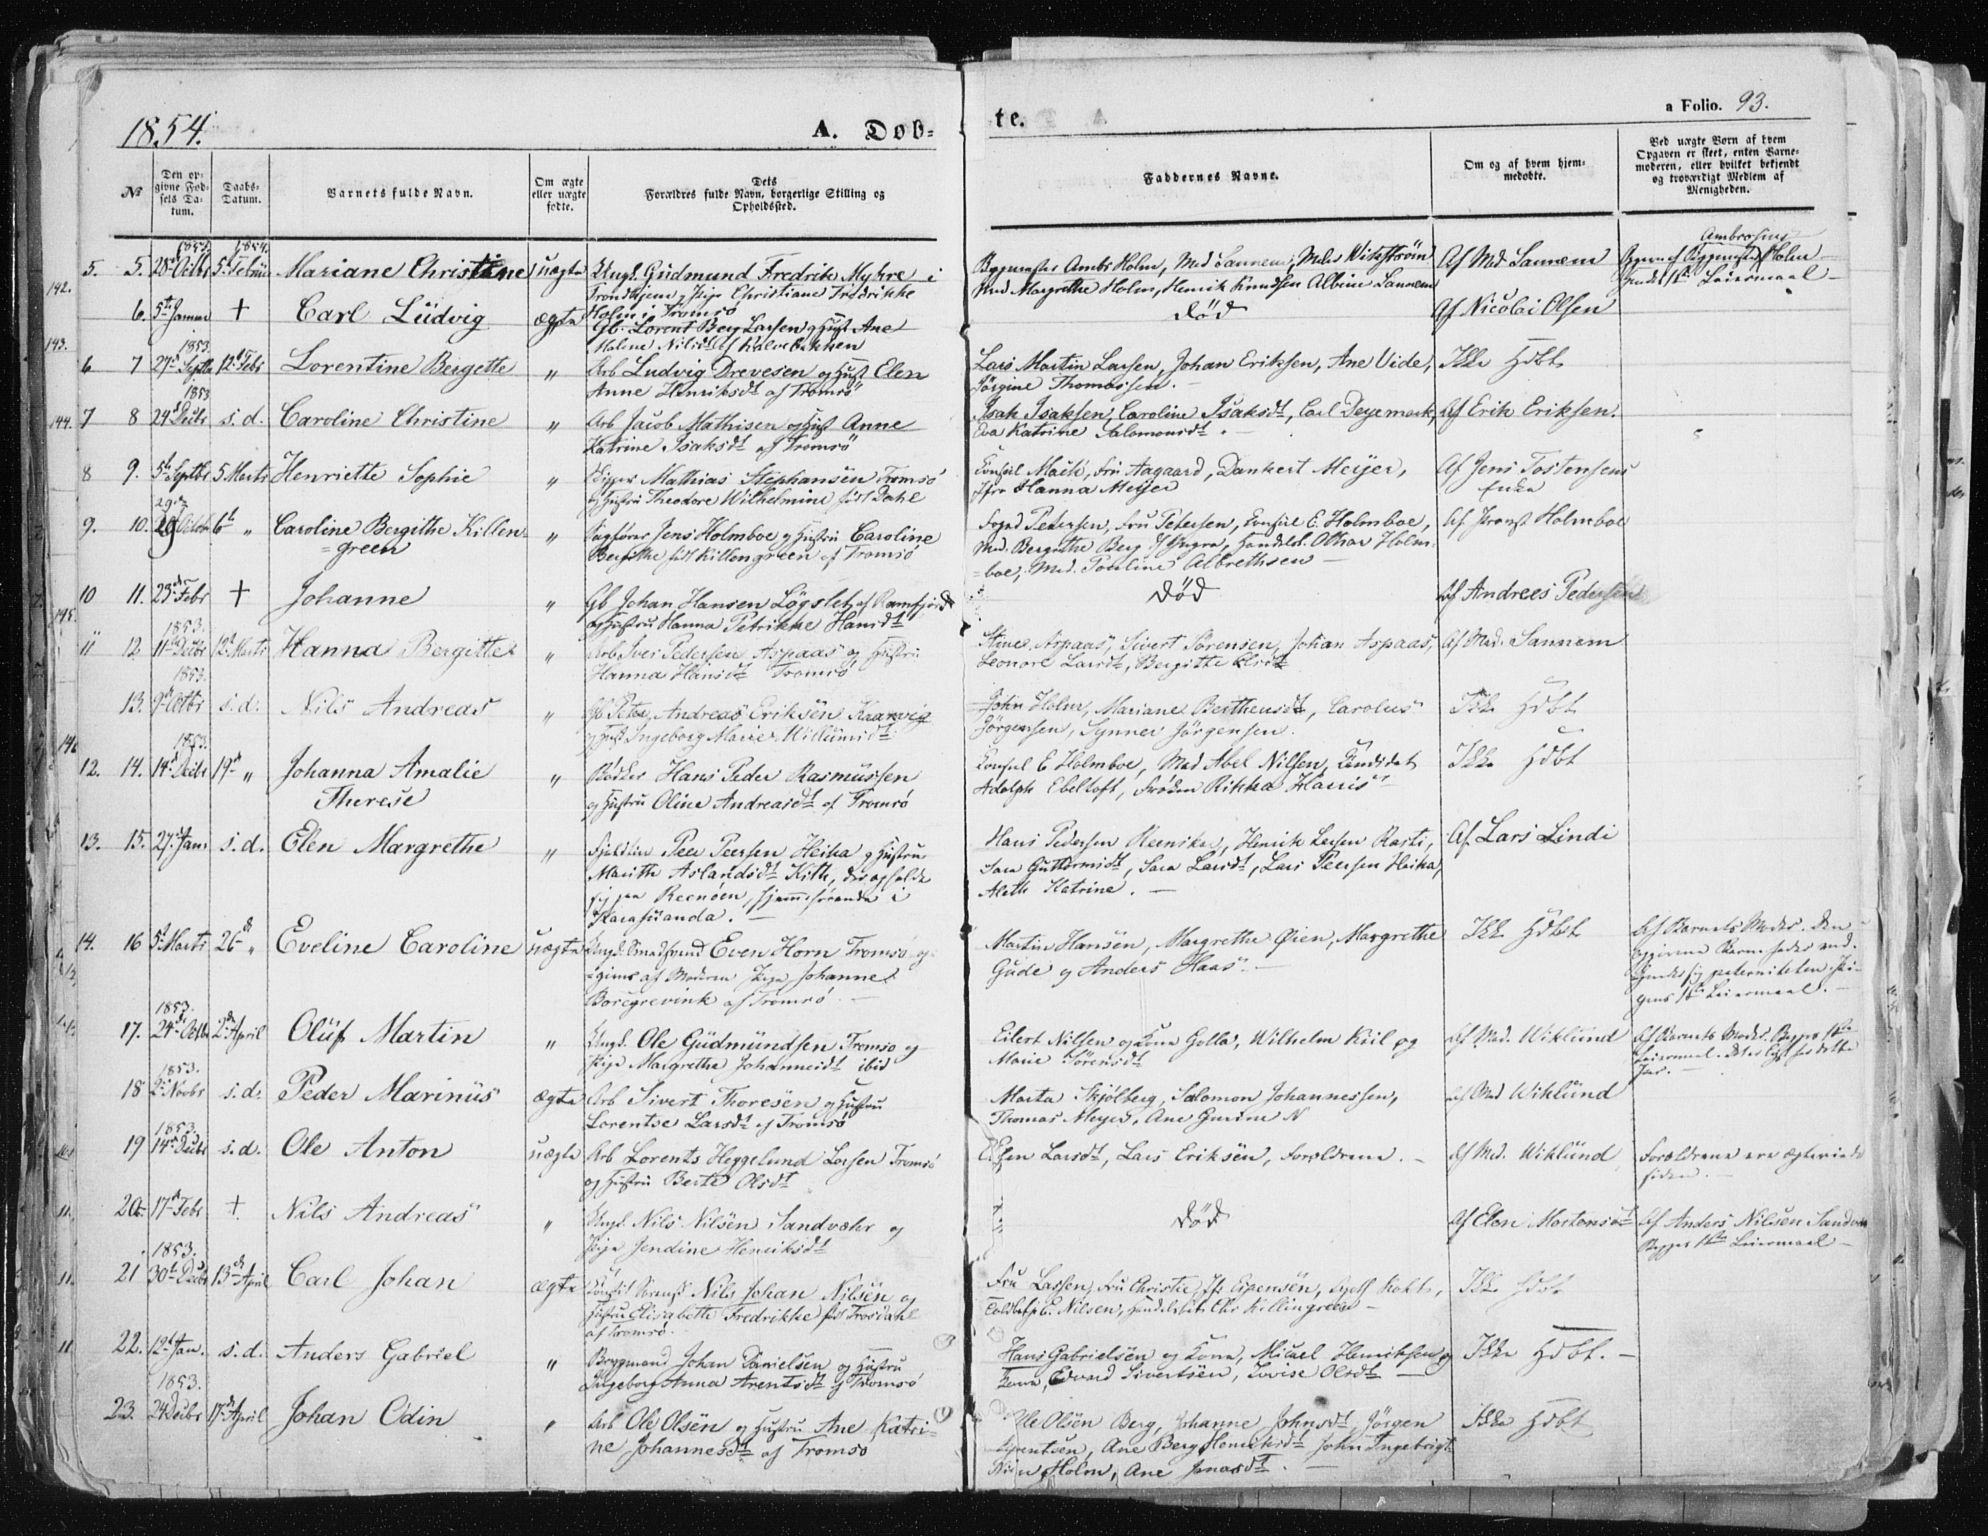 1854.
A. Døb-
te.
a Folio. 93.
No
Den op-
givne Fød-
sels Da-
tum.
Daabs-
Datum.
Barnets fulde Navn.
Om ægte
eller uægte
fødte.
Dets
Forældres fulde Navn, borgerlige Stilling og
Opholdssted.
Faddernes Navne.
Om og af hvem hjem-
medøbte.
Ved uægte Børn af hvem
Opgaven er skeet, enten Barne-
moderen, eller hvilket bekjendt
og troværdigt Medlem af
Menigheden.
5. 5. 1853. 28de Octbr 1854. 5te Februar Mariane Christine uægte Ungk. Gudmund Fredrik Myhre i
Trondhjem og Pige Christiane Fredrikke
Holm i Tromsø
Byggmester Ambr. Holm, Mad Sannem, Mad Margrethe Holm, Henrik Knudsen, Albine Sannem
Af Md Sannem
Ambrosius Holm
1ste Leiermaal
142.
6. 5te Januar + Carl Ludvig ægte Gb. Lorent Berg Larsen og Hust Ane
Malene Nilsdt af Kalvebakken
Død
Af Nicolai Olsen
143.
6 7 1853. 27de Septbr 12te Febr Lorentine Bergette „ Arb Ludvig Drevesen og Hust Elen
Anne Henriksdt af Tromsø
Lars Martin Larsen, Johan Eriksen, Ane Vide,
Jörgine Thomassen.
Ikke Hdbt
144. 7 8 1853 24de Decbr s.d. Caroline Christine „ Arb Jacob Mathisen og Hust Anne
Katrine Isaksdt af Tromsø
Isak Isaksen, Caroline Isaksdt, Carl Deyemark,
Eva Katrine Salomonsdt.
Af Erik Eriksen.
8 9. 5te Septbr 5 Marts Henriette Sophie „ Mathias Stephansen Tromsø
og Hustru Theodore Wilhelmine født Dahl
Consul Mack, Fru Aagaard, Dankert Meijer,
Jfr Hanna Meijer
Af Jens Tostensens
Enke
9. 10. 29de Octbr 6te „ Caroline Bergithe Killen-
=green
„ Sagfører Jens Holmboe og Hustru Caroline
Bergithe født Killengreen af Tromsø
Fogd Petersen, Fru Petersen, Consul E. Holmboe,
Md. Bergithe Berg, Handelsb. Othar Holm-
=boe, Md. Pauline Albrethsen
Af Provst Holmboe
10 11. 25de Febr + Johanne „ Gb Johan Hansen Løgslet af Ramfjord
og Hustru Hanna Petrikke Hansdt
Død
Af Andreas Pedersen
145.
11 12 1853. 11te Decbr 12te Marts Hanna Bergitte „ Arb Iver Pedersen Aspaas og Hustru
Hanna Hansdt Tromsø
Stine Aspaas, Sivert Sørensen, Johan Aspaas,
Leonore Larsdt, Bergitte Olsdt
Af Mad. Sannem
13. 1853. 9de Octbr s.d. Nils Andreas „ Gb Peter Andreas Eriksen Kaarvig
og Hust Ingeborg Marie Willumsdt
John Holm, Mariane Berthensdt, Carolus
Jörgensen, Synner Jörgensen.
Ikke Hdbt
146
12. 14. 1853. 14de Decbr 19de „ Johanna Amalie
Therese
„ Bødker Hans Peder Rasmussen
og Hustru Oline Andreasdt af Tromsø
Consul E Holmboe, Mad Abel Nilsen, Candidat
Adolph Ebeltoft, Frøken Rikka Harris
Ikke Hdbt
13. 15. 27de Janr s.d. Elen Margrethe „ Fjeldfin Peer Peersen Heika og Hustru
Marithe Aslaksdt Kith, der opholde
sig paa Reenøen, hjemmehørende i
Karasuanda.
Hans Pedersen Reenskar, Henrik Larsen Rasti,
Sara Guttormsdt, Sara Larsdt, Lars Peersen Heika,
Aleth Katrine.
Af Lars Lindi
14. 16 5te Marts 26de „ Eveline Caroline uægte Ungk. Smedsvend Even Horn Tromsø og-
=given af Moderen Pige Johanne
Borgrevink af Tromsø
Martin Hansen, Margrethe Øien, Margrethe
Gude og Anders Haas.
Ikke Hdbt
Af Barnets Moder. Den
opgivne Barnefader ved-
kjender sig paterniteten. Pi-
gens 1ste Leiermaal.
17. 1853. 24de Octbr 2den April Oluf Martin „ Ungk. Ole Gudmundsen Tromsø og
Pige Margrethe Johannesdt ibid
Eilert Nilsen og Kone Golla, Wilhelm Kiil og
Marie Sörensdt
Af Mad. Wiklund
Af Barnets Moder. Begges 1ste
Leiermaal.
18 1853. 2de Novbr s.d. Peder Marinus ægte Arb Sivert Thoresen og Hustru
Lorentse Larsdt af Tromsø
Marta Skjølberg, Salomon Johannessen,
Thomas Meyer, Ane Gurine N
Af Mad Wiklund
19 1853. 14de Decbr s.d. Ole Anton uægte Arb Lorents Heggelund Larsen Tromsø
og Hustru Berte Olsdt
Elen Larsdt, Lars Eriksen, Forældrene.
Af Md. Wiklund
Forældrene ere ægteviede
siden.
20 17de Febr + Nils Andreas „ Ungk. Nils Nilsen Sandvær og
Pige Jendine Henriksdt
Død
Af Elen Mortensdt
Af Anders Nilsen Sandvær
Begges 1ste Leiermaal
21 1853. 30te Decbr 13de April Carl Johan ægte Nils Johan Nilsen og
Hustru Elisabethe Fredrikke født Trosdahl
af Tromsø.
Fru Lassen, Fru Christie, Jfr Espensen,
Nilsen, Handelsb. Chr Killingreen
Ikke Hdbt
22. 12te Jan. s.d. Anders Gabriel „ Byggmand Johan Danielsen og Hustru
Ingeborg Anna Arentsdt af Tromsø
Hans Gabrielsen og Kone, Mikael Henriksen og
Kone, Edvard Sivertsen, Lovise Olsdt
Ikke Hdbt.
23. 1853. 24 Decbr 17de April Johan Odin „ Arb Ole Olsen og Hustru Ane Katri-
ne Johannesdt af Tromsø
Ole Olsen Berg, Johanne Johnsdt, Jörgen
Arentsen, Ane Berg Henriksdt, John Ingebrigt-
Holm, Ane Jonasdt.
Ikke Hdbt